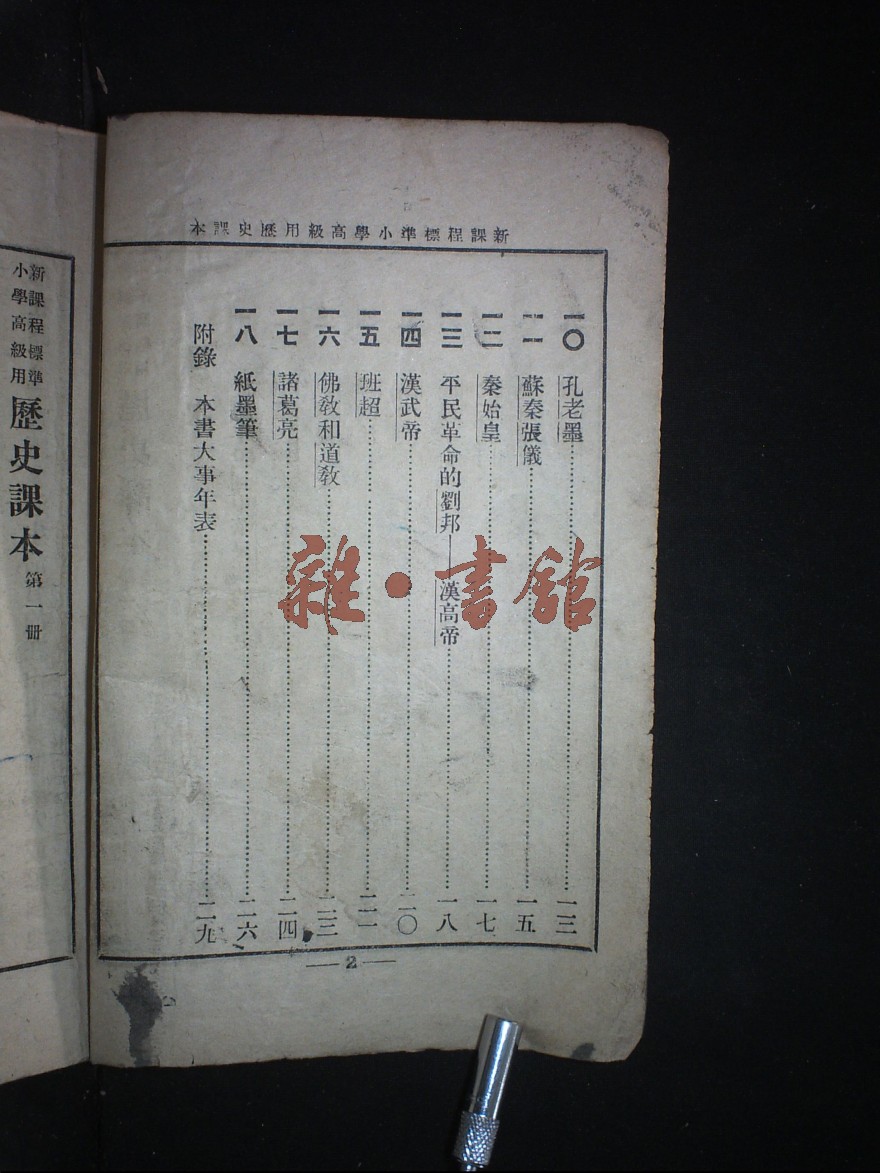 新課程標準小學高級用歷史課本
一〇 孔老墨……一三
一一 蘇秦張儀……一五
一二 秦始皇……一七
一三 平民革命的劉邦——漢高帝……一八
一四 漢武帝……二〇
一五 班超……二一
一六 佛敎和道敎……二三
一七 諸葛亮……二四
一八 紙墨筆……二六
附錄 本書大事年表……二九
—2—
新課程標準
小學高級用
歷史課本 第一冊
雜·書館